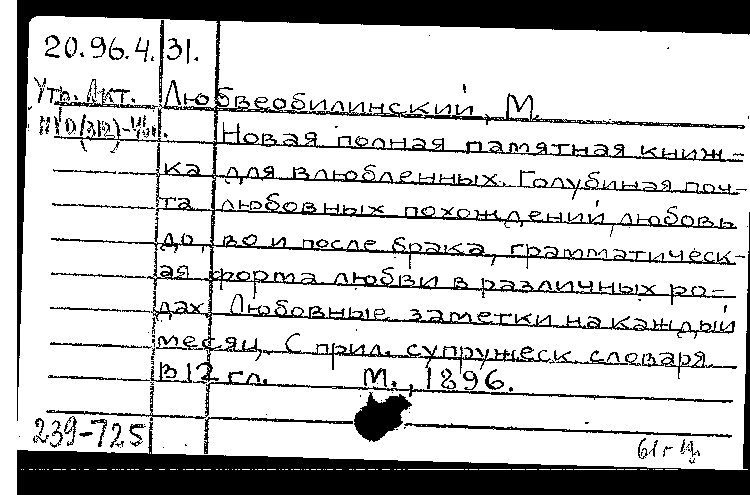 20.96.4.31.
Утр. Акт. Любвеобилинский, М.
Новая полная памятная книж-
ка для влюбленных. Голубиная поч-
та любовных похождений, любовь
до, во и после брака, грамматическ-
ая форма любви в различных ро-
дах. Любовные заметки на каждый
месяц. С прил. супружеск. словаря.
В 12 гл. М., 1896.
239-725